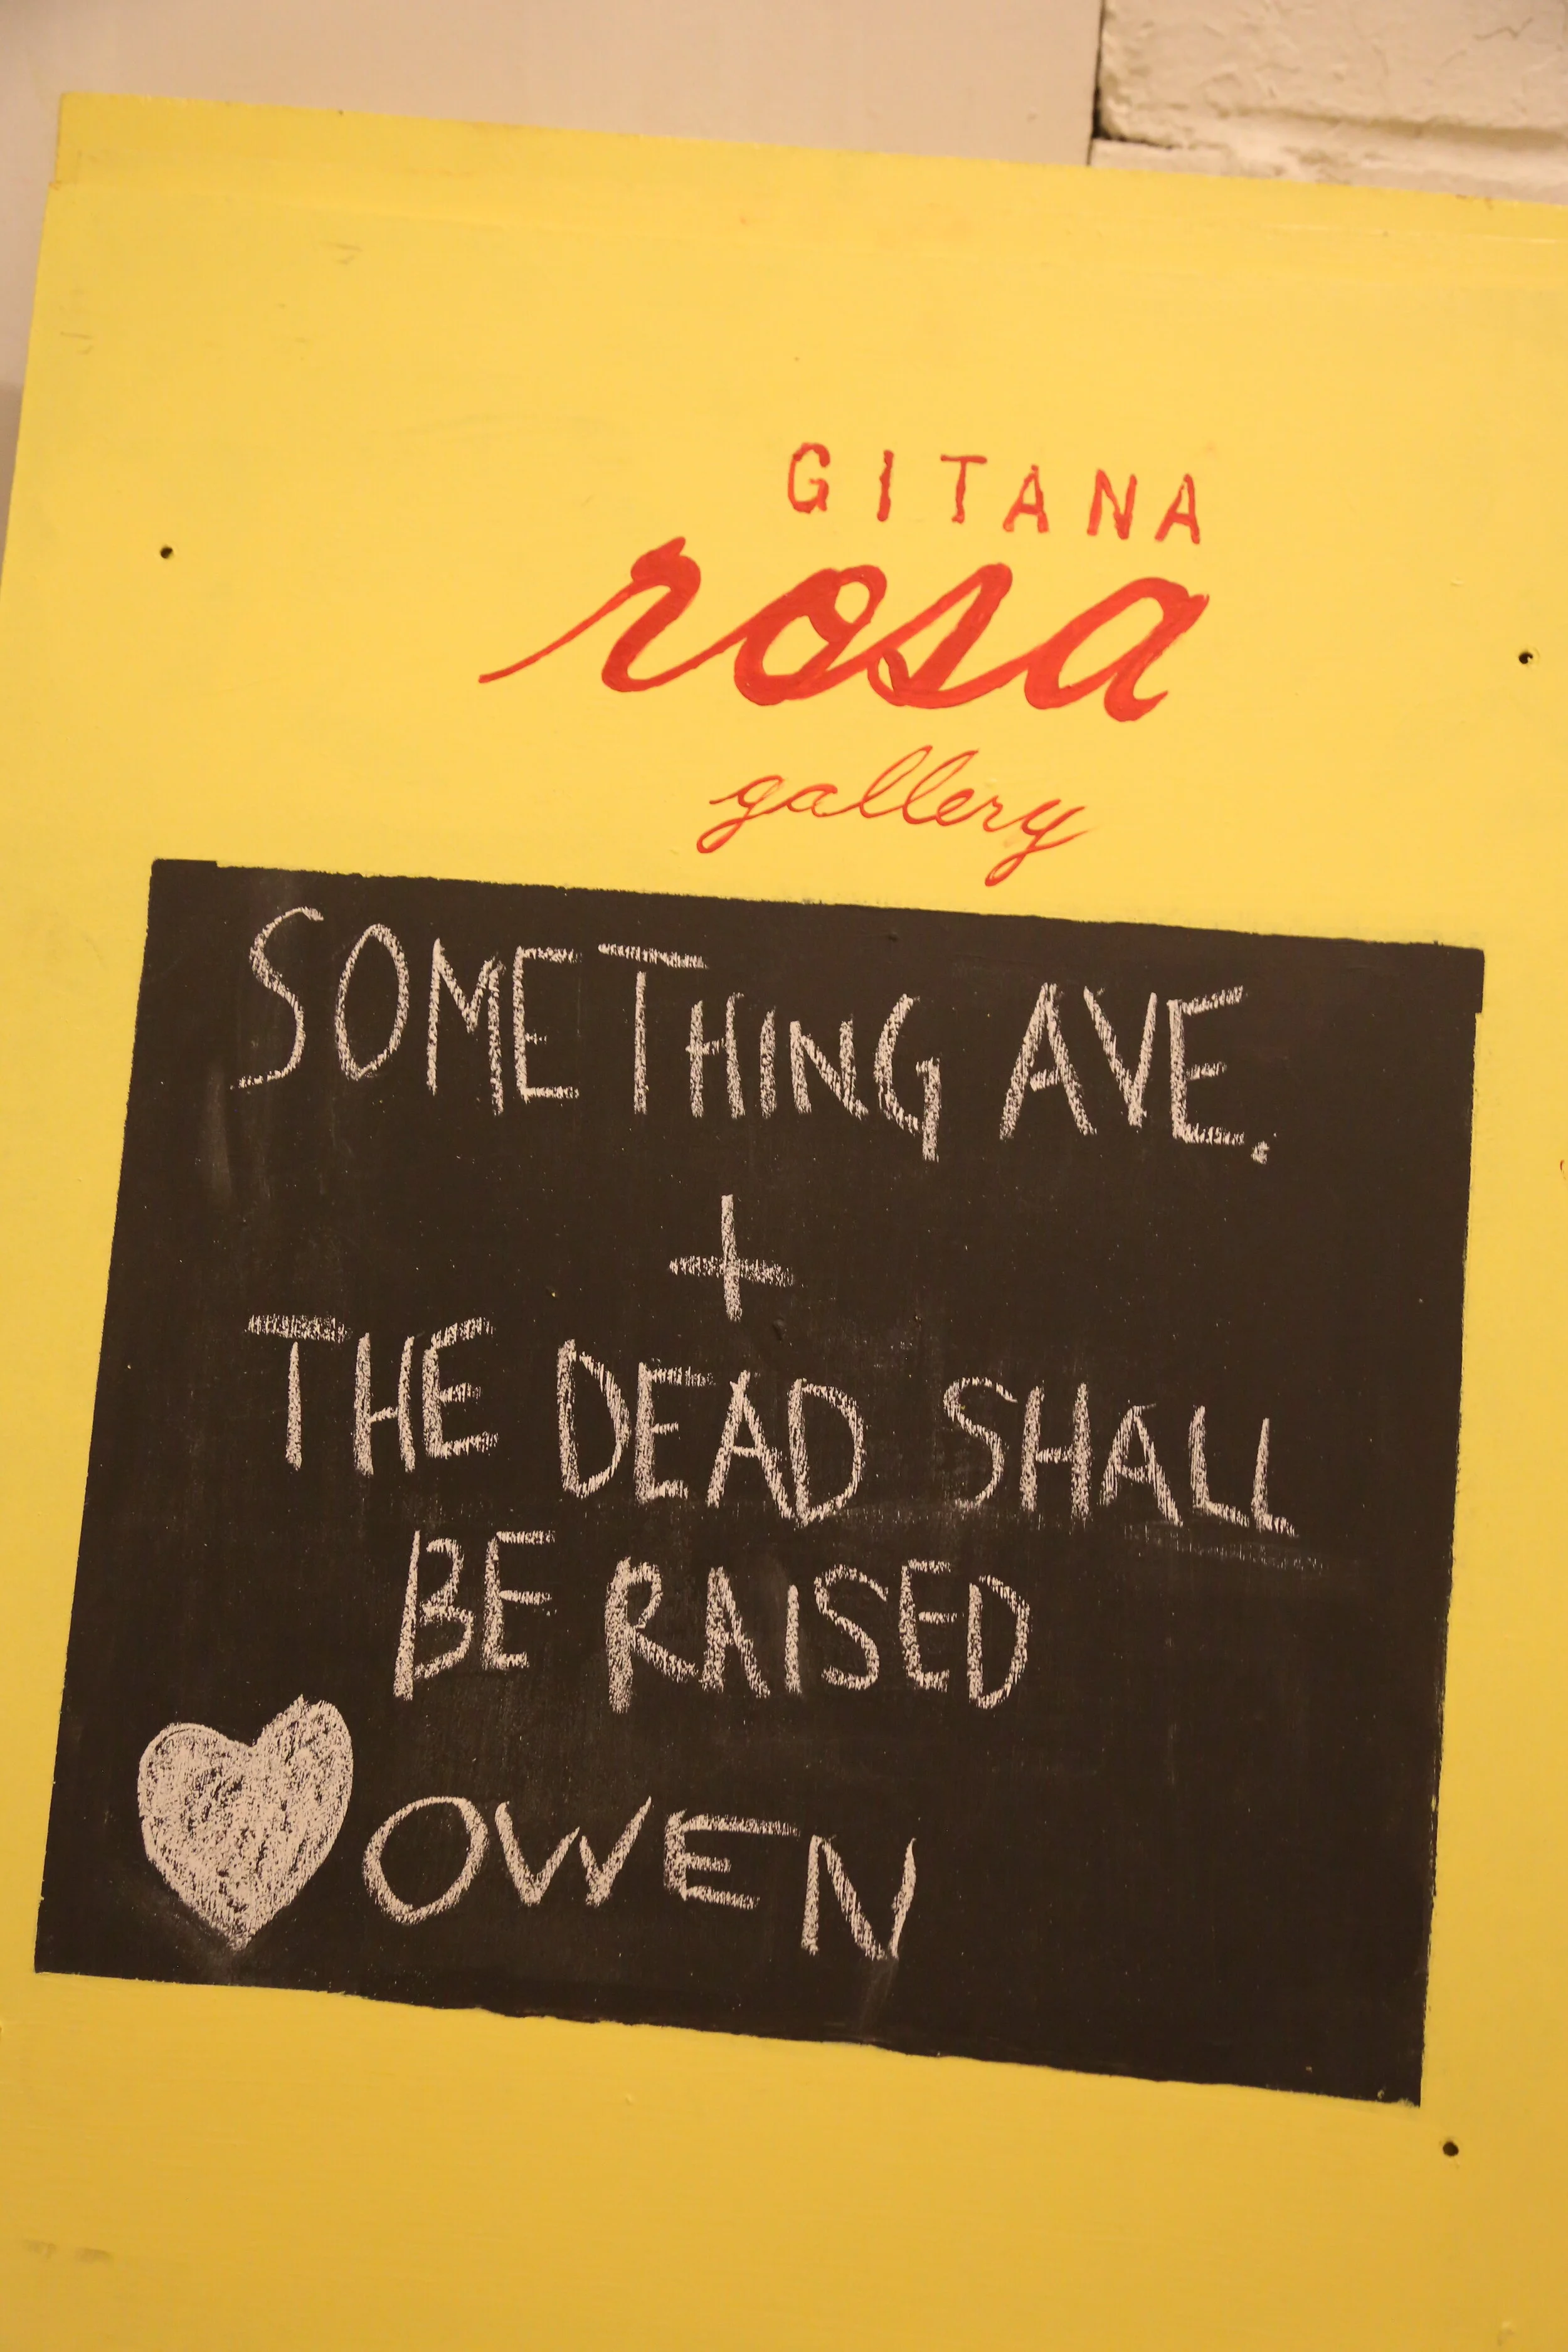 GITANA
rosa
gallery
SOMETHING AVE.
+
THE DEAD SHALL
BE RAISED
OWEN